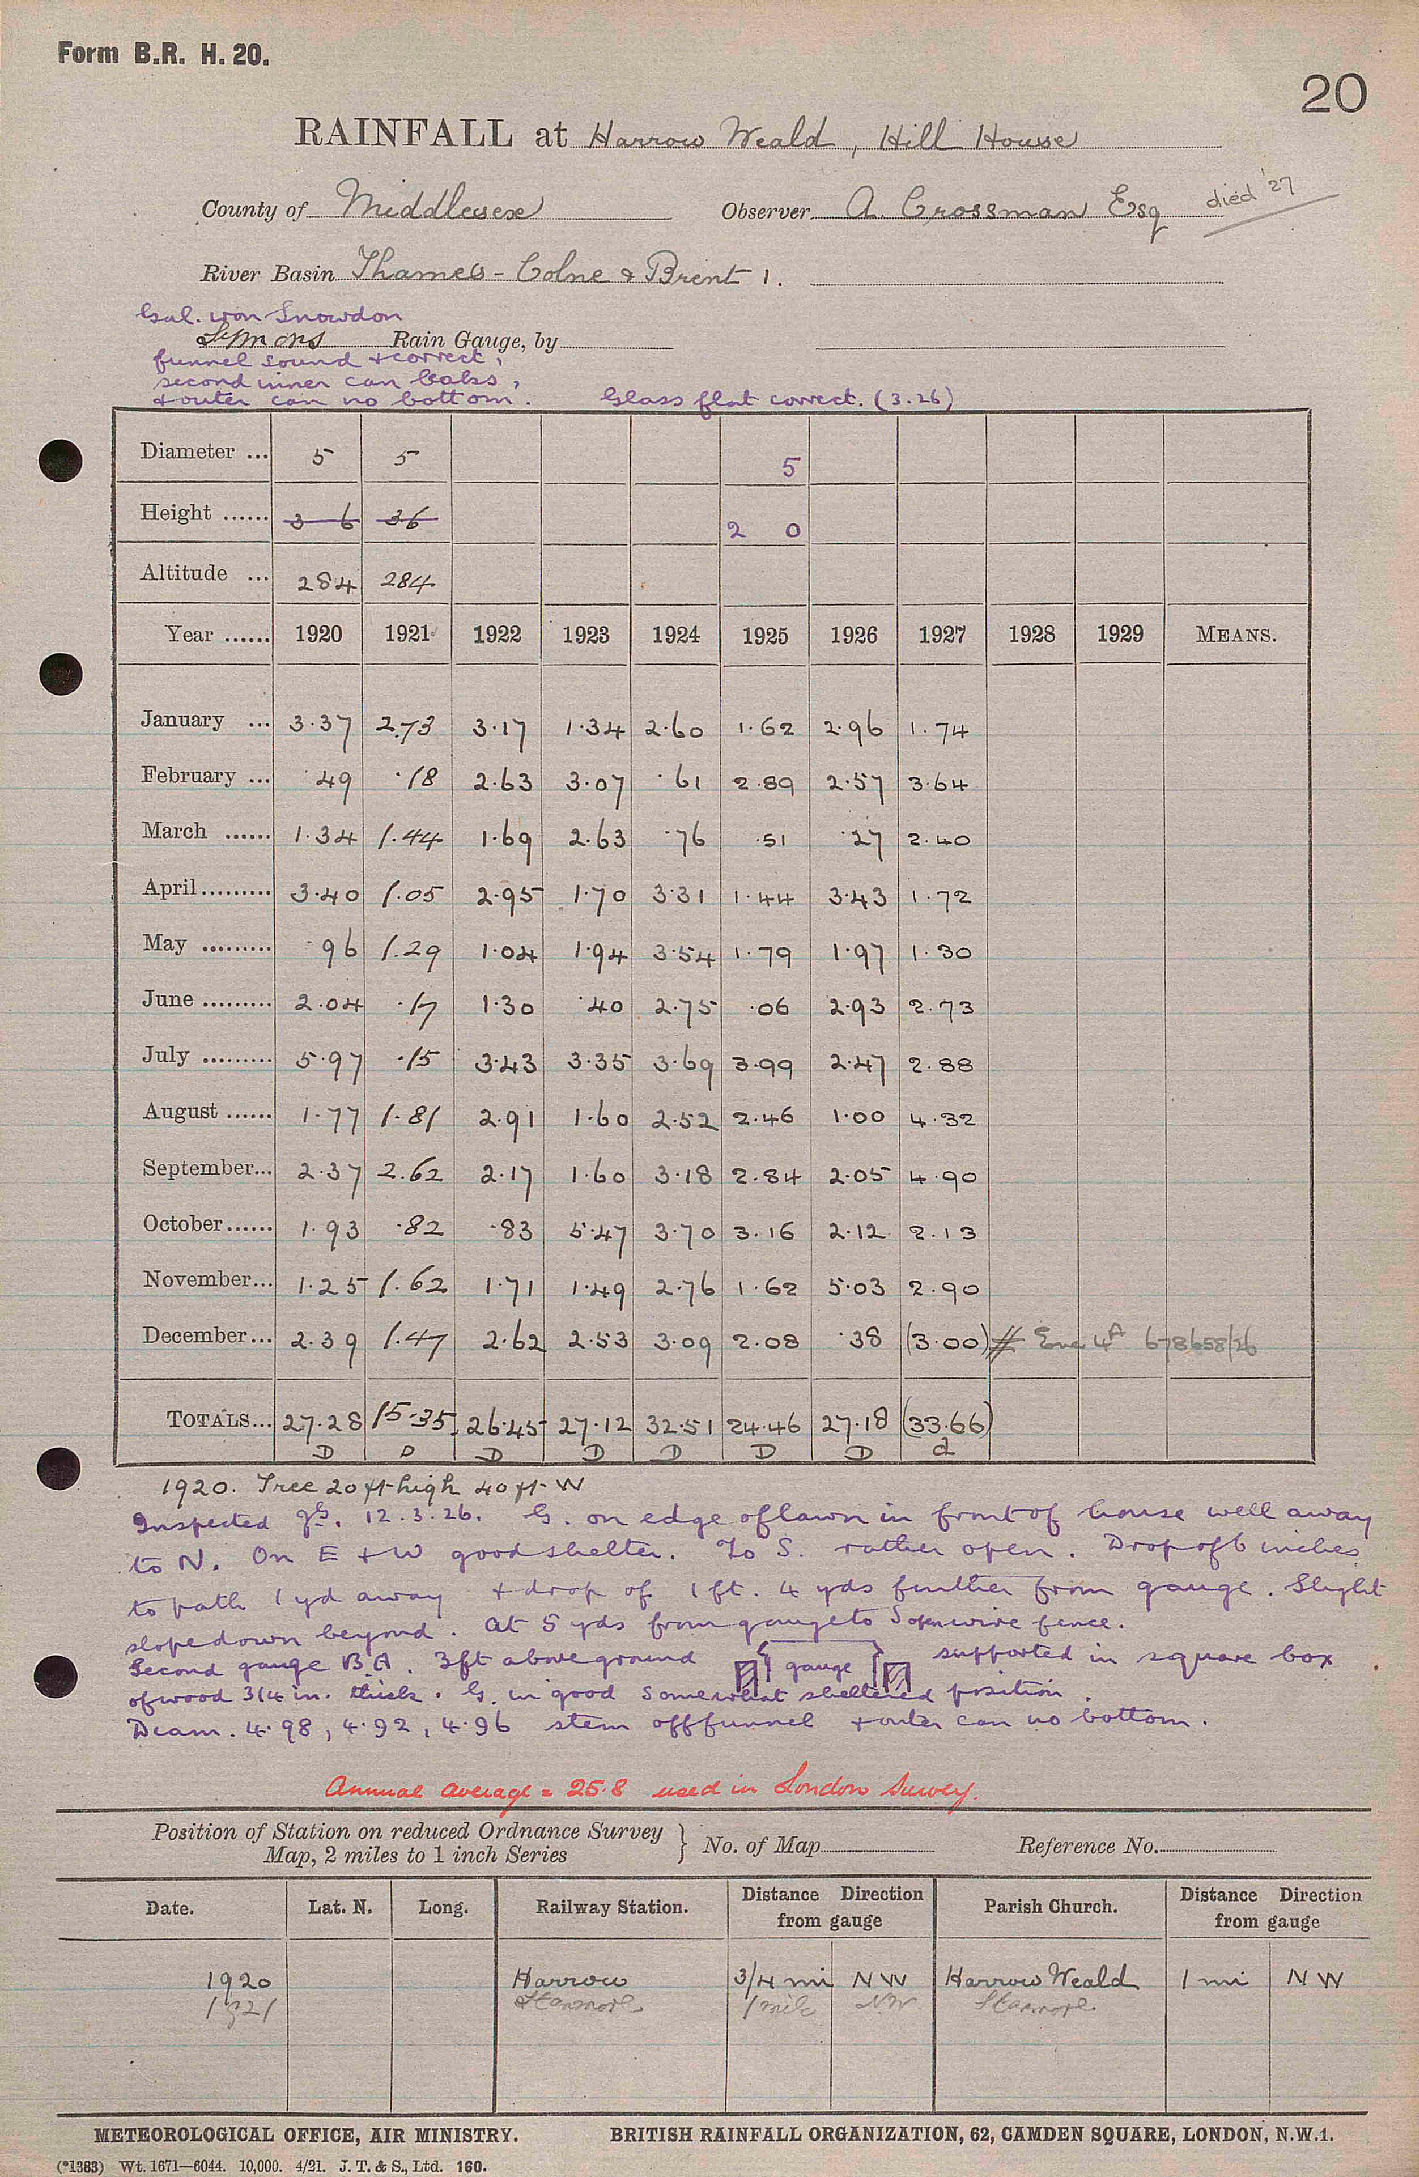 Form B.R. H. 20.
20
RAINFALL at Harrow Weald, Hill House
County of Middlesex Observer A. Crossman Esq died '27
River Basin Thames - Colne & Brent 1.
Gal. iron Snowdon
Symons Rain Gauge, by
funnel sound & correct,
second inner can leaks,
& outer can no bottom. Glass flat correct. (3.26)
Diameter ... 5 5 5
Height ...... 3 6 36 2 0
Altitude ... 284 284
Year ...... 1920 1921 1922 1923 1924 1925 1926 1927 1928 1929 MEANS.
January ... 3.37 2.73 3.17 1.34 2.60 1.62 2.96 1.74
February ... .49 .18 2.63 3.07 .61 2.89 2.57 3.64
March ...... 1.34 1.44 1.69 2.63 .76 .51 .27 2.40
April......... 3.40 1.05 2.95 1.70 3.31 1.44 3.43 1.72
May ......... .96 1.29 1.04 1.94 3.54 1.79 1.97 1.30
June ......... 2.04 .17 1.30 .40 2.75 .06 2.93 2.73
July ......... 5.97 .15 3.43 3.35 3.69 3.99 2.47 2.88
August ...... 1.77 1.81 2.91 1.60 2.52 2.46 1.00 4.32
September... 2.37 2.62 2.17 1.60 3.18 2.84 2.05 4.90
October...... 1.93 .82 .83 5.47 3.70 3.16 2.12 2.13
November... 1.25 1.62 1.71 1.49 2.76 1.62 5.03 2.90
December... 2.39 1.47 2.62 2.53 3.09 2.08 .38 (3.00) # Enc 4A 678658/26
TOTALS... 27.28 15.35 26.45 27.12 32.51 24.46 27.18 (33.66)
D D D D D D D d
1920. Tree 20 ft high 40 ft W
Inspected gS. 12.3.26. G. on edge of lawn in front of house well away
to N. On E & W good shelter. To S. rather open. Drop of 6 inches
to path 1 yd away & drop of 1 ft. 4 yds further from gauge. Slight
slope down beyond. At 5 yds from gauge to S open wire fence.
Second gauge B.A. 3ft above ground gauge supported in square box
of wood 3/4 in. thick. G. in good somewhat sheltered position.
Diam. 4.98, 4.92, 4.96 stem off funnel & outer can no bottom.
Annual average = 25.8 used in London Survey.
Position of Station on reduced Ordnance Survey
Map, 2 miles to 1 inch Series } No. of Map Reference No.
Date. Lat. N. Long. Railway Station. Distance Direction from gauge Parish Church. Distance Direction from gauge
1920 Harrow 3/4 mi NW Harrow Weald 1 mi NW
1921 Stanmore 1 mile NW Stanmore
METEOROLOGICAL OFFICE, AIR MINISTRY. BRITISH RAINFALL ORGANIZATION, 62, CAMDEN SQUARE, LONDON, N.W.1.
(*1383) Wt. 1671—6044. 10,000. 4/21. J. T. & S., Ltd. 160.